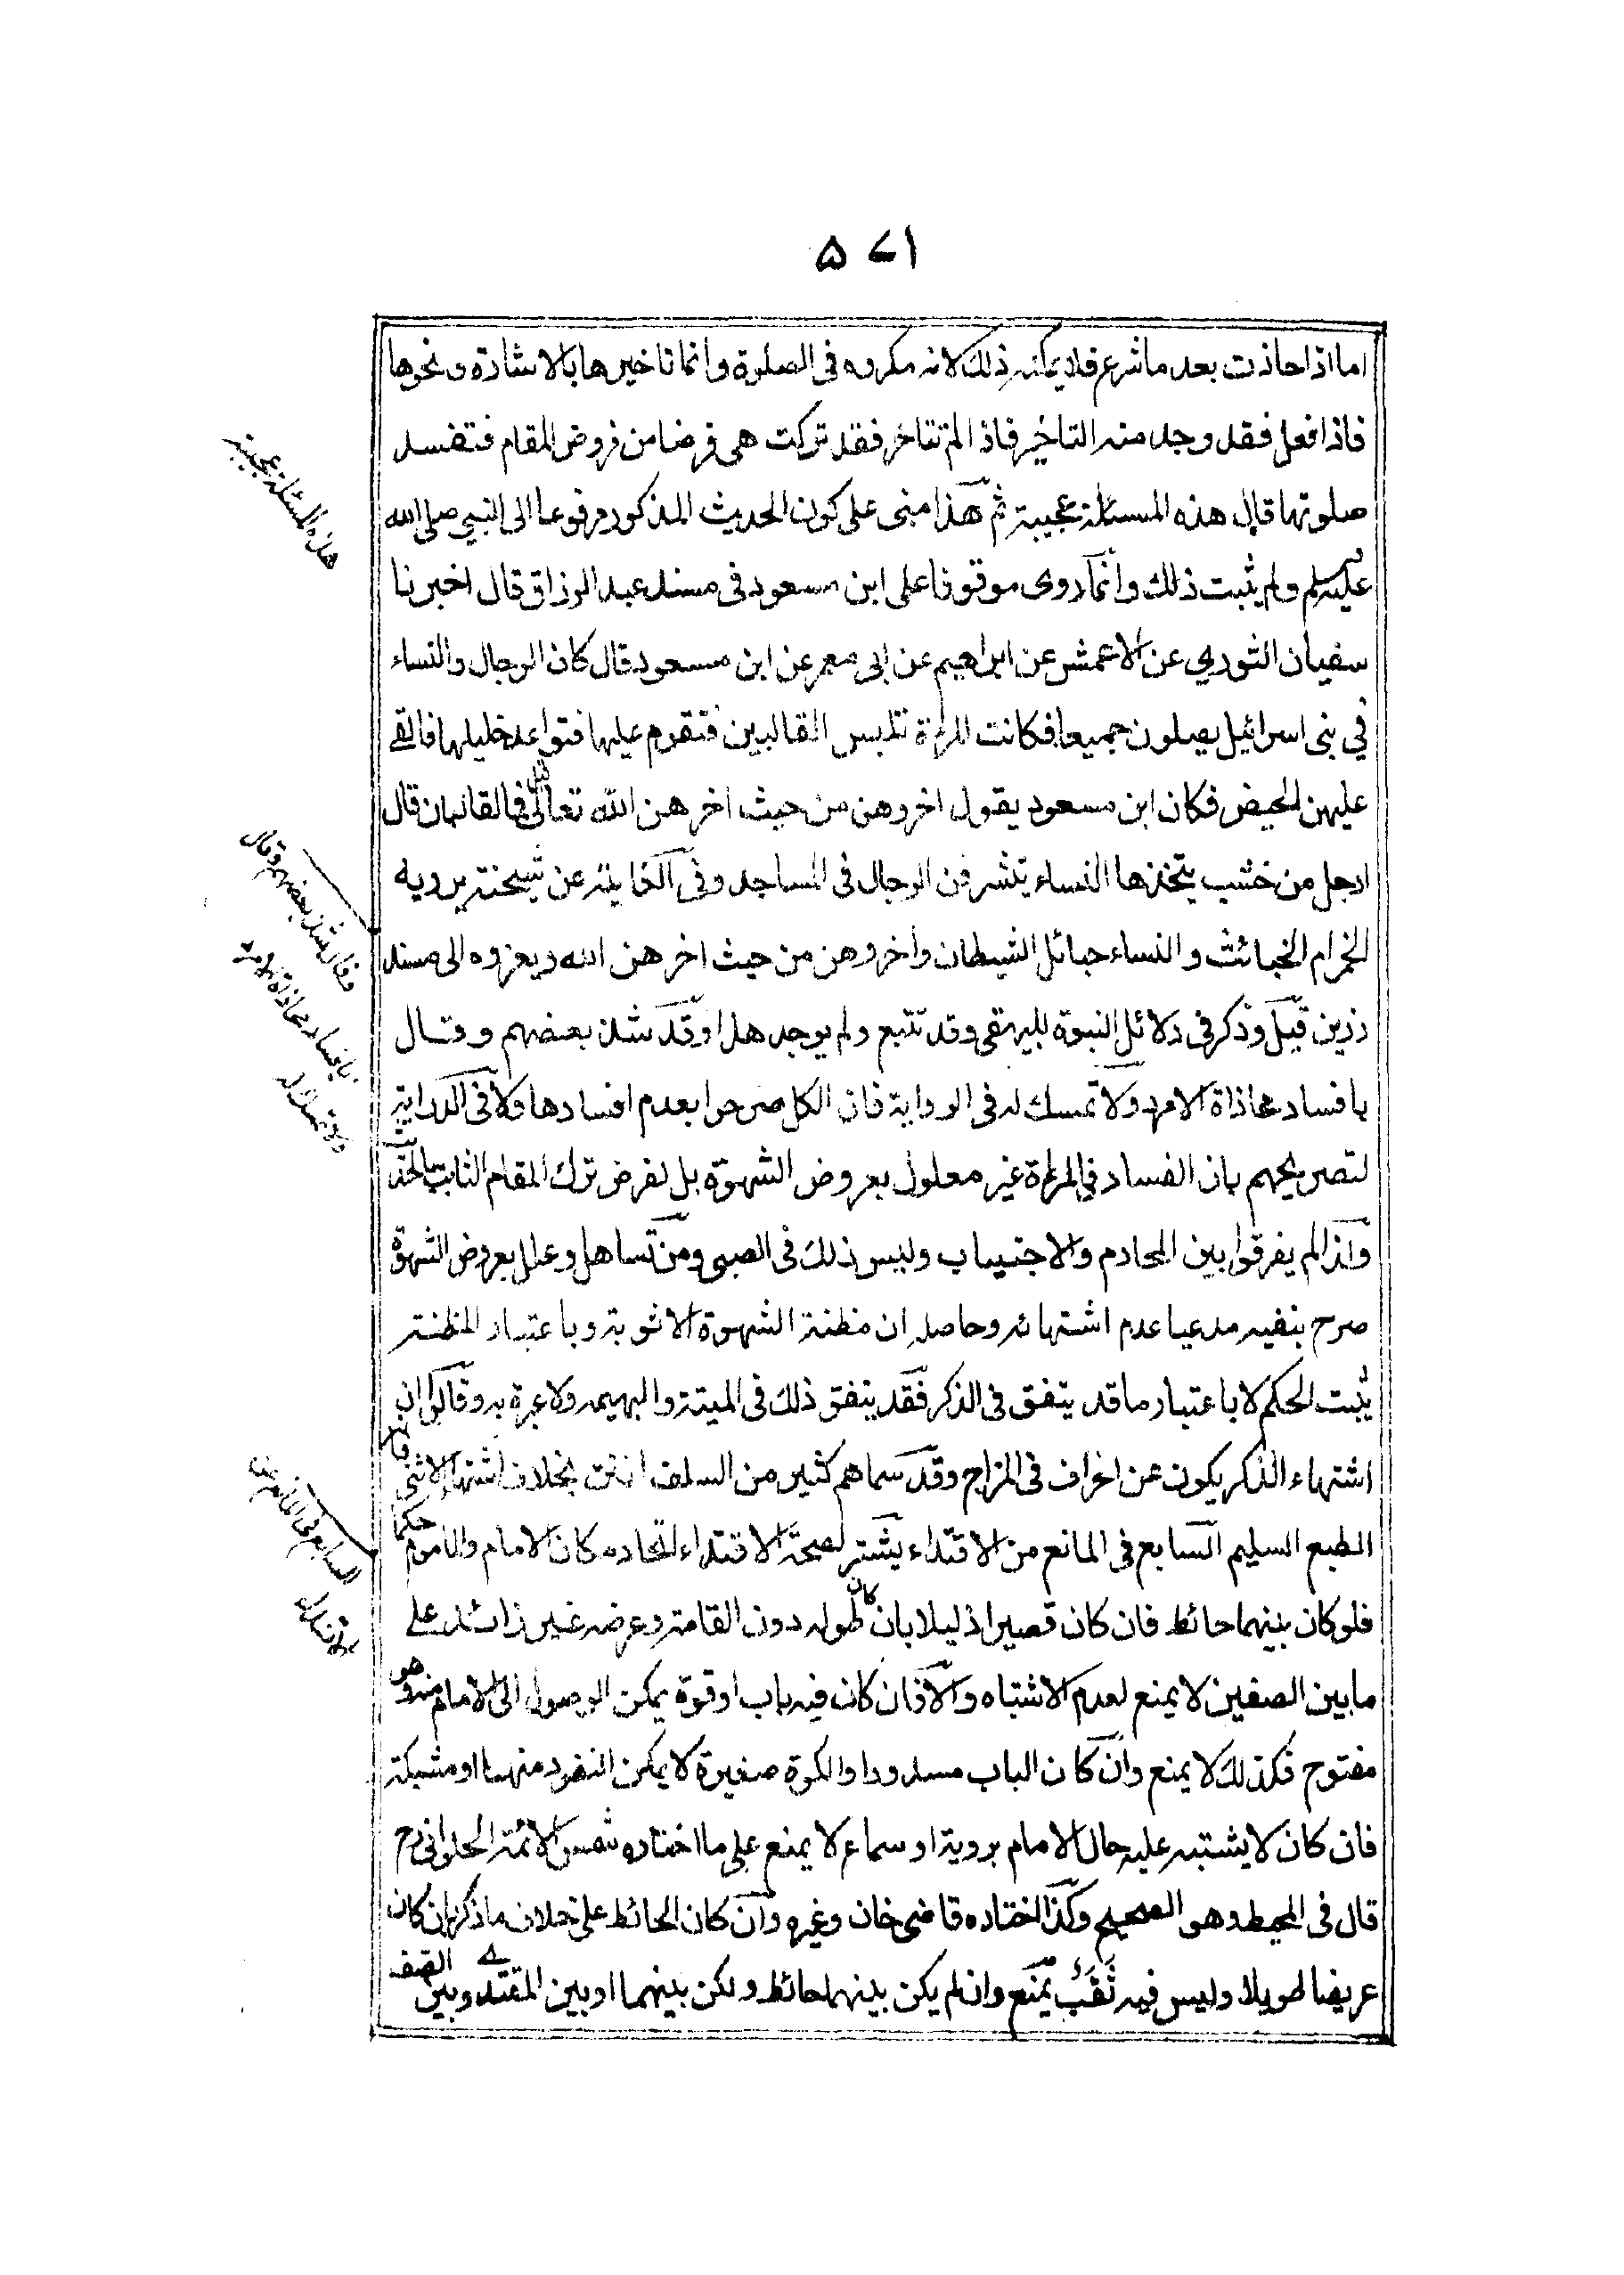 ۵۷۱
اما اذا حاذت بعد ما شرع فلا يمكنه ذلك لانه مكروه فى الصلوة وانما تاخيرها بالاشارة ونحوها
فاذا فعل فقد وجد منه التاخير فاذا لم تتاخر فقد تركت هى فرضا من فروض المقام فتفسد
صلوتها قال هذه المسئلة عجيبة ثم هذا مبنى على كون الحديث المذكور مرفوعا الى النبي صلى الله
عليه وسلم ولم يثبت ذلك وانما روى موقوفا على ابن مسعود فى مسند عبد الرزاق قال اخبرنا
سفيان الثوري عن الاعمش عن ابراهيم عن ابى معمر عن ابن مسعود قال كان الرجال والنساء
في بنى اسرائيل يصلون جميعا فكانت المرأة تلبس القالبين فتقوم عليها فتواعد خليلها فالقى
عليهن الحيض فكان ابن مسعود يقول اخروهن من حيث اخرهن الله تعالى قيل فما القالبان قال
ارجل من خشب يتخذها النساء يتشرفن الرجال فى المساجد وفى الغاية عن شيخه يرويه
الخمر ام الخبائث والنساء حبائل الشيطان واخروهن من حيث اخرهن الله ويعزوه الى مسند
رزين قيل وذكر فى دلائل النبوة للبيهقى وقد تتبع ولم يوجد هذا وقد شذ بعضهم وقال
بافساد محاذاة الامرد ولا تمسك له فى الرواية فان الكل صرحوا بعدم افسادها ولا فى الدراية
لتصريحهم بان الفساد في المرأة غير معلول بعروض الشهوة بل لفرض ترك المقام الثابت بالحديث
ولذا لم يفرقوا بين المحارم والاجنبيات وليس ذلك فى الصبى ومن تساهل وعلل بعروض الشهوة
صرح بنفيه مدعيا عدم اشتهائه وحاصله ان مظنة الشهوة الانوثة وباعتبار المظنة
يثبت الحكم لا باعتبار ما قد يتفق فى الذكر فقد يتفق ذلك فى الميتة والبهيمة ولا عبرة به وقالوا ان
اشتهاء الذكر يكون عن انحراف فى المزاج وقد سماهم كثير من السلف انتن بخلاف اشتهاء الانثى فانه
الطبع السليم السابع فى المانع من الاقتداء يشترط لصحة الاقتداء اتحاد مكان الامام والماموم حكما
فلو كان بينهما حائط فان كان قصيرا ذليلا بان كان طوله دون القامة وعرضه غير زائد على
ما بين الصفين لا يمنع لعدم الاشتباه والا فان كان فيه باب او قوة يمكن الوصول الى الامام منه وهو
مفتوح فكذلك لا يمنع وان كان الباب مسدودا والكوة صغيرة لا يمكن النفوذ منهما او مشبكة
فان كان لا يشتبه عليه حال الامام برؤية او سماع لا يمنع على ما اختاره شمس الائمة الحلوانى رح
قال فى المحيط وهو الصحيح وكذا اختاره قاضى خان وغيره وان كان الحائط على خلاف ما ذكر بان كان
عريضا طويلا وليس فيه ثقب يمنع وان لم يكن بينهما حائط ولكن بينهما او بين المقتدى وبين الصف
هذه المسئلة عجيبة
السابع فى المانع من
الاقتداء